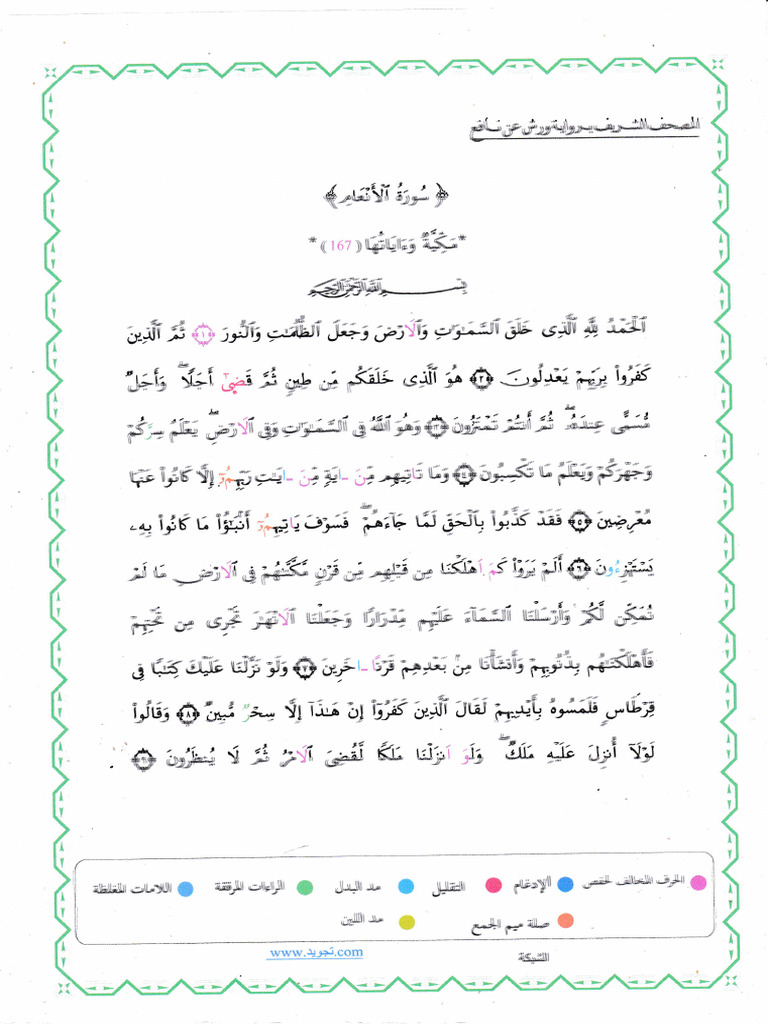 المصحف الشريف برواية ورش عن نافع
﴿ سُورَةُ اُلْأَنْعَامِ ﴾
*مَكِّيَّةٌ وَءَايَاتُهَا (167) *
بِسْمِ اللَّهِ الرَّحْمَٰنِ الرَّحِيمِ
اَلْحَمْدُ لِلهِ اِلَّذِى خَلَقَ اَلسَّمَٰوَٰتِ وَالَارْضَ وَجَعَلَ اَلظُّلُمَٰتِ وَالنُّورَ ﴿١﴾ ثُمَّ اَلَّذِينَ
كَفَرُواْ بِرَبِّهِمْ يَعْدِلُونَ ﴿٢﴾ هُوَ اَلَّذِى خَلَقَكُم مِّن طِينٍ ثُمَّ قَضَىٰٓ أَجَلًا ۖ وَأَجَلٌ
مُّسَمًّى عِندَهُۥ ۖ ثُمَّ أَنتُمْ تَمْتَرُونَ ﴿٣﴾ وَهُوَ اَللَّهُ فِى اِلسَّمَٰوَٰتِ وَفِى اِلَارْضِ ۖ يَعْلَمُ سِرَّكُمْ
وَجَهْرَكُمْ وَيَعْلَمُ مَا تَكْسِبُونَ ﴿٤﴾ وَمَا تَاتِيهِم مِّنَ -ايَةٍ مِّنَ -ايَٰتِ رَبِّهِمُۥٓ إِلَّا كَانُواْ عَنْهَا
مُعْرِضِينَ ﴿٥﴾ فَقَدْ كَذَّبُواْ بِالْحَقِّ لَمَّا جَآءَهُمْ ۖ فَسَوْفَ يَاتِيهِمُۥٓ أَنۢبَٰٓؤُاْ مَا كَانُواْ بِهِۦ
يَسْتَهْزِءُونَ ﴿٦﴾ أَلَمْ يَرَوْاْ كَمَ اَهْلَكْنَا مِن قَبْلِهِم مِّن قَرْنٍ مَّكَّنَّٰهُمْ فِى اِلَارْضِ مَا لَمْ
نُمَكِّن لَّكُمْ وَأَرْسَلْنَا اَلسَّمَآءَ عَلَيْهِم مِّدْرَارًا وَجَعَلْنَا اَلَانْهَٰرَ تَجْرِى مِن تَحْتِهِمْ
فَأَهْلَكْنَٰهُم بِذُنُوبِهِمْ وَأَنشَأْنَا مِنۢ بَعْدِهِمْ قَرْنًا -اخَرِينَ ﴿٧﴾ وَلَوْ نَزَّلْنَا عَلَيْكَ كِتَٰبًا فِى
قِرْطَاسٍ فَلَمَسُوهُ بِأَيْدِيهِمْ لَقَالَ اَلَّذِينَ كَفَرُوٓاْ إِنْ هَٰذَآ إِلَّا سِحْرٌ مُّبِينٌ ﴿٨﴾ وَقَالُواْ
لَوْلَآ أُنزِلَ عَلَيْهِ مَلَكٌ ۖ وَلَوَ اَنزَلْنَا مَلَكًا لَّقُضِىَ اَلَامْرُ ثُمَّ لَا يُنظَرُونَ ﴿٩﴾
الحرف المخالف لحفص الإدغام التقليل مد البدل الراءات المرققة اللامات المغلظة
صلة ميم الجمع مد اللين
الشبكة www.تجويد.com